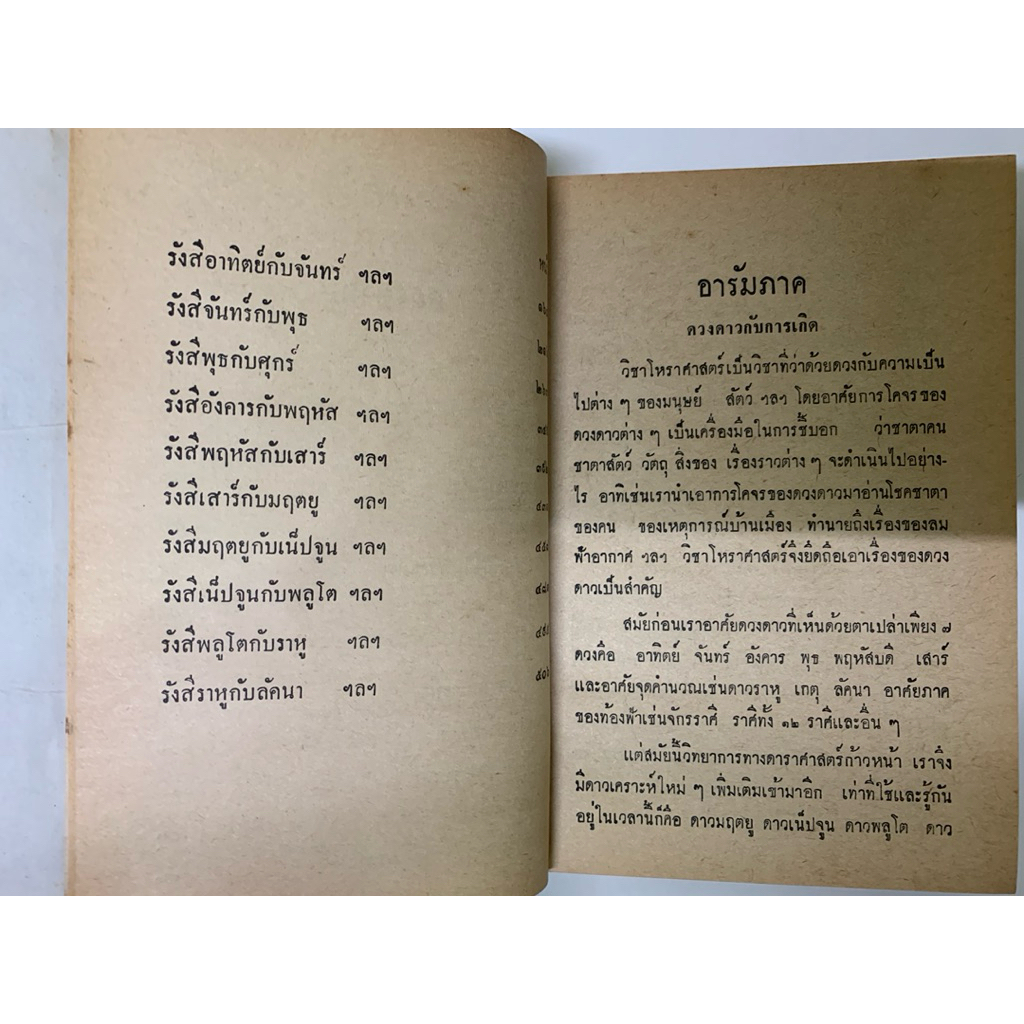 รังสีอาทิตย์กับจันทร์ ฯลฯ
รังสีจันทร์กับพุธ ฯลฯ
รังสีพุธกับศุกร์ ฯลฯ
รังสีอังคารกับพฤหัส ฯลฯ
รังสีพฤหัสกับเสาร์ ฯลฯ
รังสีเสาร์กับมฤตยู ฯลฯ
รังสีมฤตยูกับเน็ปจูน ฯลฯ
รังสีเน็ปจูนกับพลูโต ฯลฯ
รังสีพลูโตกับราหู ฯลฯ
รังสีราหูกับลัคนา ฯลฯ
อารัมภาค
ดวงดาวกับการเกิด
วิชาโหราศาสตร์เป็นวิชาที่ว่าด้วยดวงกับความเป็น
ไปต่าง ๆ ของมนุษย์ สัตว์ ฯลฯ โดยอาศัยการโคจรของ
ดวงดาวต่าง ๆ เป็นเครื่องมือในการชี้บอก ว่าชาตาคน
ชาตาสัตว์ วัตถุ สิ่งของ เรื่องราวต่าง ๆ จะดำเนินไปอย่าง-
ไร อาทิเช่นเรานำเอาการโคจรของดวงดาวมาอ่านโชคชาตา
ของคน ของเหตุการณ์บ้านเมือง ทำนายถึงเรื่องของลม
ฟ้าอากาศ ฯลฯ วิชาโหราศาสตร์จึงยึดถือเอาเรื่องของดวง
ดาวเป็นสำคัญ
สมัยก่อนเราอาศัยดวงดาวที่เห็นด้วยตาเปล่าเพียง ๗
ดวงคือ อาทิตย์ จันทร์ อังคาร พุธ พฤหัสบดี เสาร์
และอาศัยจุดคำนวณเช่นดาวราหู เกตุ ลัคนา อาศัยภาค
ของท้องฟ้าเช่นจักรราศี ราศีทั้ง ๑๒ ราศีและอื่น ๆ
แต่สมัยนี้วิทยาการทางดาราศาสตร์ก้าวหน้า เราจึง
มีดาวเคราะห์ใหม่ ๆ เพิ่มเติมเข้ามาอีก เท่าที่ใช้และรู้กัน
อยู่ในเวลานี้ก็คือ ดาวมฤตยู ดาวเน็ปจูน ดาวพลูโต ดาว